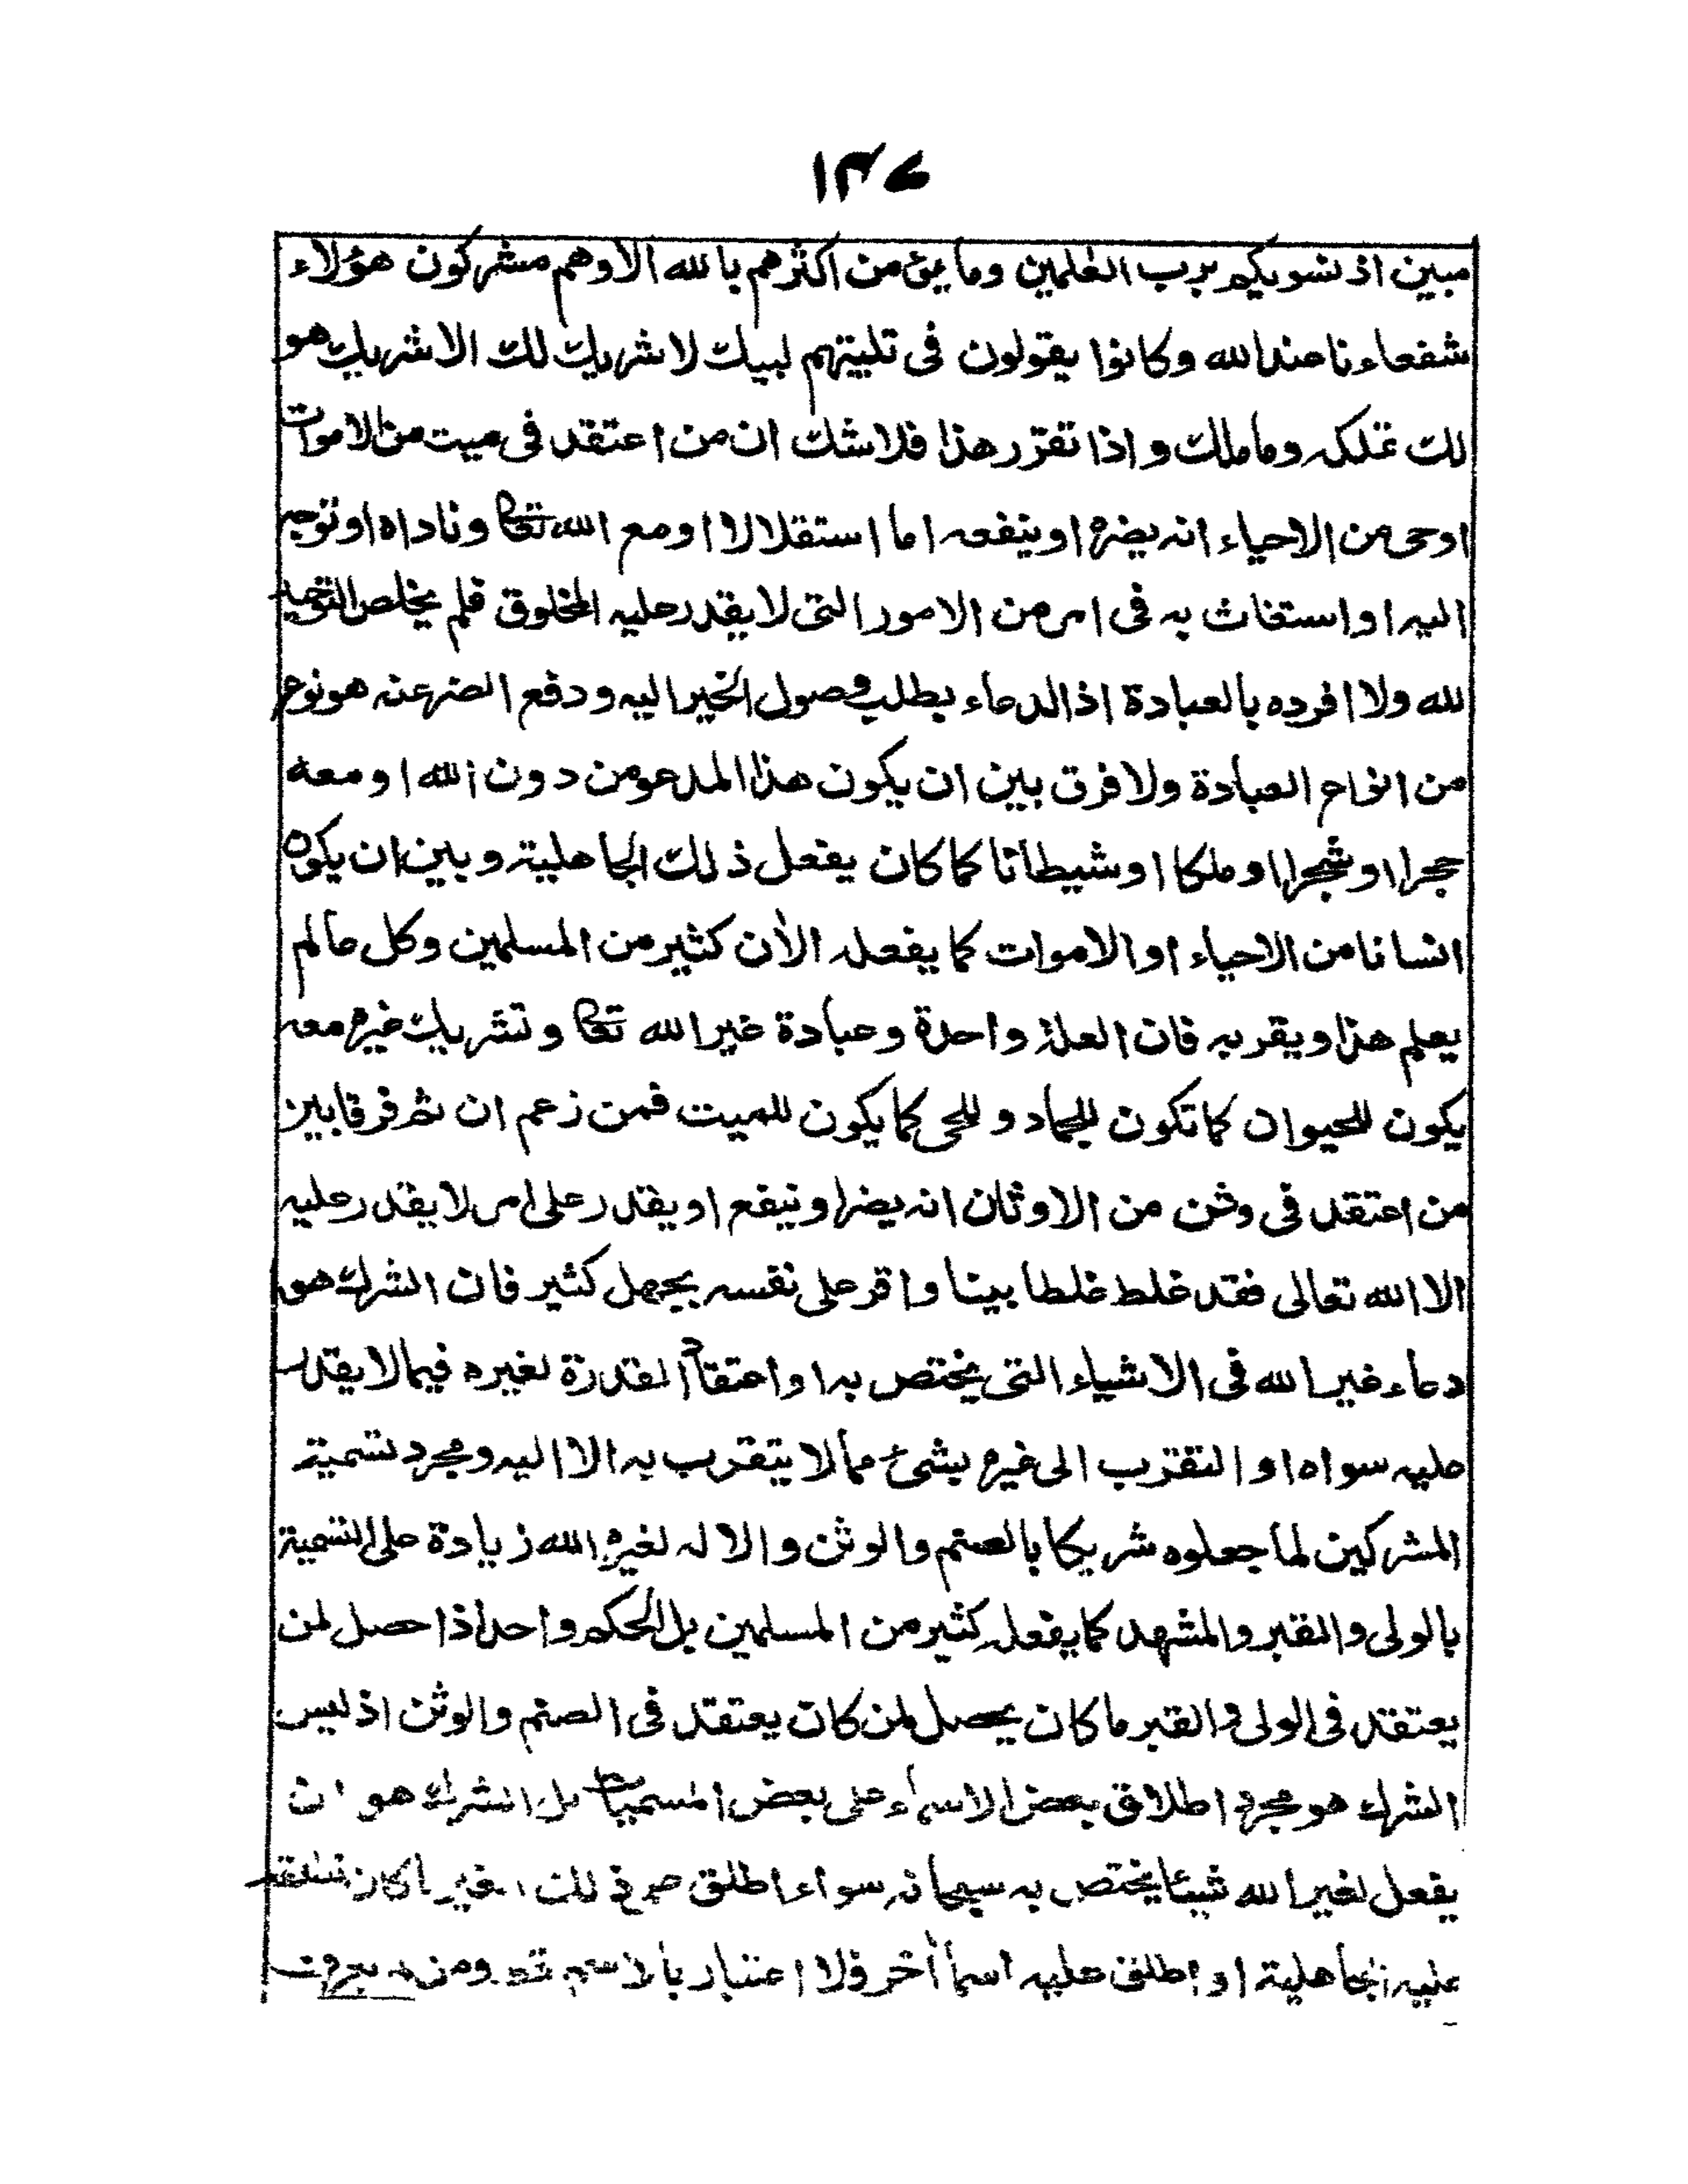 ١٣٤
مبين اذ نسويكم برب العٰلمين وما يؤمن اكثرهم بالله الا وهم مشركون هؤلاء
شفعاءنا عند الله وكانوا يقولون فى تلبيتهم لبيك لا شريك لك الا شريك هو
لك تملكه وما ملك و اذا تقرر هذا فلا شك ان من اعتقد فى ميت من الاموات
او حى من الاحياء انه يضره او ينفعه اما استقلالا او مع الله تعالى و ناداه او توجه
اليه او استغاث به فى امر من الامور التى لا يقدر عليه المخلوق فلم يخلص التوحيد
لله ولا افرده بالعبادة اذ الدعاء بطلب وصول الخير اليه و دفع الضر عنه هو نوع
من انواع العبادة ولا فرق بين ان يكون هذا المدعو من دون الله او معه
حجرا او شجرا او ملكا او شيطانا كما كان يفعل ذلك الجاهلية و بين ان يكون
انسانا من الاحياء او الاموات كما يفعله الأن كثير من المسلمين وكل عالم
يعلم هذا و يقر به فان العلة واحدة وعبادة غير الله تعالى و تشريك غيره معه
يكون للحيوان كما تكون للجماد و للحى كما يكون للميت فمن زعم ان ثم فرقا بين
من اعتقد فى وثن من الاوثان انه يضر او ينفع او يقدر على امر لا يقدر عليه
الا الله تعالى فقد غلط غلطا بينا و اقر على نفسه بجهل كثير فان الشرك هو
دعاء غير الله فى الاشياء التى يختص به او اعتقاد القدرة لغيره فيما لا يقدر
عليه سواه او التقرب الى غيره بشئ مما لا يتقرب به الا اليه و مجرد تسمية
المشركين لما جعلوه شريكا بالصنم والوثن و الا له لغير الله زيادة على التسمية
بالولى و القبر و المشهد كما يفعله كثير من المسلمين بل الحكم واحد اذا حصل لمن
يعتقد فى الولى و القبر ما كان يحصل لمن كان يعتقد فى الصنم والوثن اذ ليس
الشرك هو مجرد اطلاق بعض الاسماء على بعض المسميات بل الشرك هو ان
يفعل لغير الله شيئا يختص به سبحانه سواء اطلق على ذلك الغير ما كان تطلقه
عليه الجاهلية او اطلق عليه اسما أخر فلا اعتبار بالاسم قط ومن لم يعرف